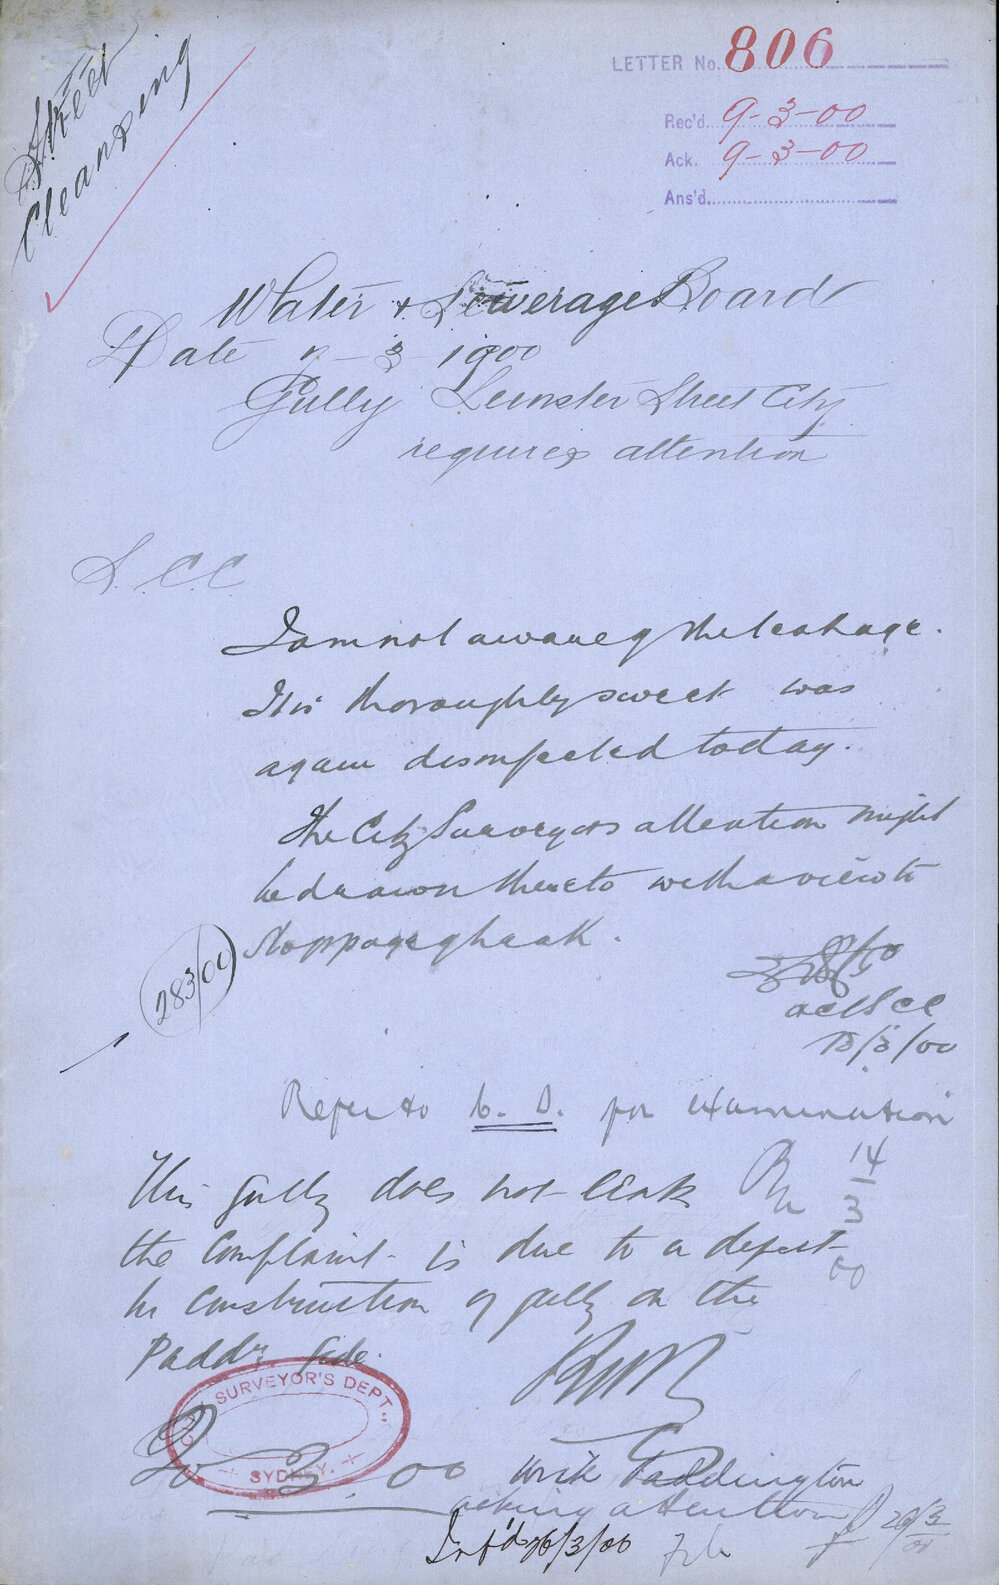 Street
Cleansing
LETTER No. 806
Rec'd. 9-3-00
Ack. 9-3-00
Ans'd.
Water & Sewerage Board
Date 7-3-1900
Gully Leinster Street City
requires attention
S.C.C
I am not aware of the leakage.
It is thoroughly sweet was
again disinfected today.
The City Surveyors attention might
be drawn thereto with a view to
stoppage of leak.
283/00
Act S CC
13/3/00
Refer to C. S. for examination
14/3/00
This gully does not leak
the complaint is due to a defect
in construction of gully on the
Padd'n side.
CITY SURVEYOR'S DEPT.,
SYDNEY.
20 3.00
Write Paddington
asking attention
20/3/00
Inf'd 26/3/00